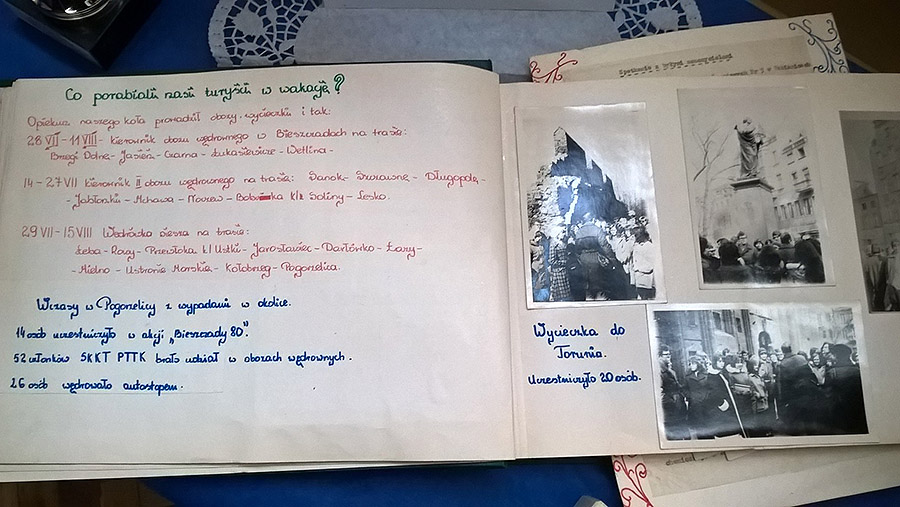 Co porabiali nasi turyści w wakacje?
Opiekun naszego koła prowadził obozy, wycieczki i tak:
28 VII - 11 VIII - kierownik obozu wędrownego w Bieszczadach na trasie:
Brzegi Dolne - Jasień - Czarna - Łukasiewicze - Wetlina -
14 - 27 VII kierownik II obozu wędrownego na trasie: Sanok - Szczawne - Długopole -
- Jabłonki - Mchawa - Bobrka k/k Soliny - Lesko.
29 VII - 15 VIII Wędrówka piesza na trasie:
Łeba - Rowy - Przewłoka k/Ustki - Jarosławiec - Darłówko - Łazy -
- Mielno - Ustronie Morskie - Kołobrzeg - Pogorzelica.
Wczasy w Pogorzelicy z wypadami w okolice.
14 osób uczestniczyło w akcji „Bieszczady 80".
52 członków SKKT PTTK brało udział w obozach wędrownych.
26 osób wędrowało autostopem.
Wycieczka do
Torunia.
Uczestniczyło 20 osób.
Spotkanie z byłymi nauczycielami